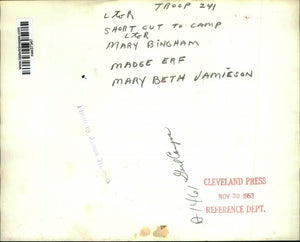 TROOP 241
L TO R
SHORT CUT TO CAMP
L TO R
MARY BINGHAM
MADGE ERF
MARY BETH JAMIESON
CLEVELAND PRESS
NOV 20 1963
REFERENCE DEPT.